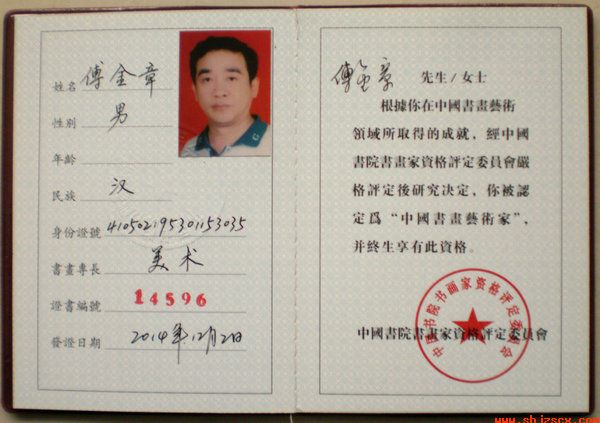 姓名 傅金章
性别 男
年齡
民族 汉
身份證號 410502195301153035
書畫專長 美术
證書編號 14596
發證日期 2014年12月2日
傅金章 先生/女士
根據你在中國書畫藝術
領域所取得的成就，經中國
書院書畫家資格評定委員會嚴
格評定後研究决定，你被認
定爲“中國書畫藝術家”，
并終生享有此資格。
中國書院書畫家資格評定委員會
中国书院书画家资格评定委员会